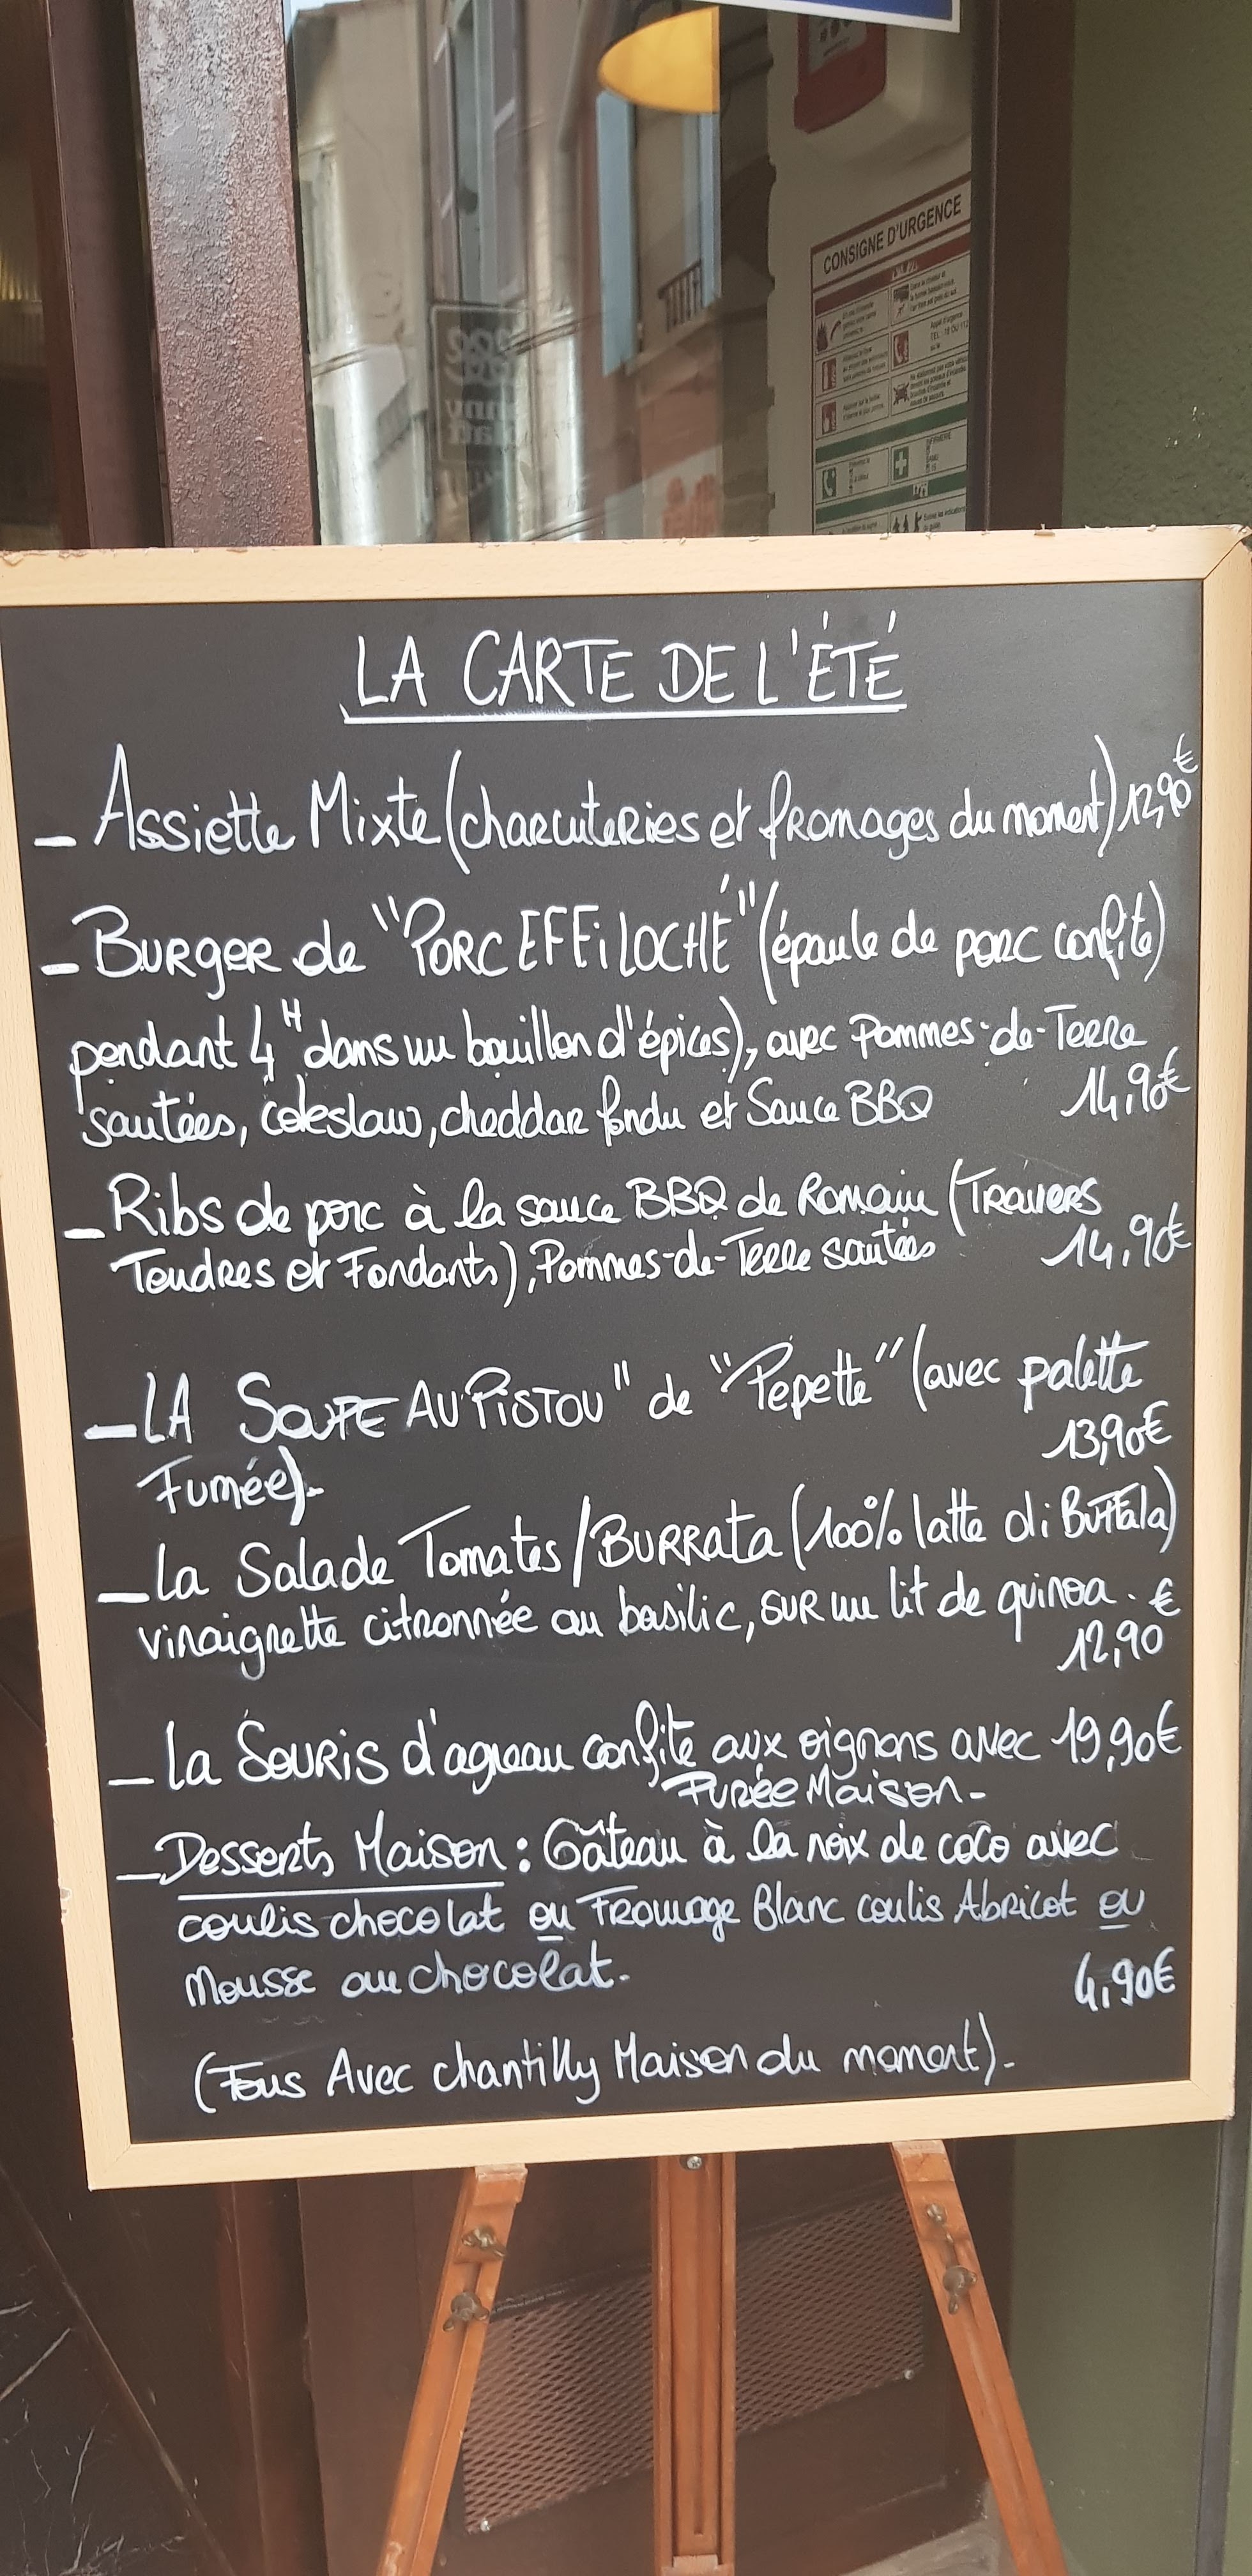 CONSIGNE D'URGENCE
LA CARTE DE L'ÉTÉ
- Assiette Mixte (charcuteries et fromages du moment) 12,90€
- Burger de "PORC EFFiLOCHÉ" (épaule de porc confite)
pendant 4H dans un bouillon d'épices), avec Pommes-de-Terre
sautées, coleslaw, cheddar fondu et Sauce BBQ 14,90€
- Ribs de porc à la sauce BBQ de Romain (Travers
Tendres et Fondants), Pommes-de-Terre sautées 14,90€
- LA SOUPE AU PISTOU" de "Pépette" (avec palette
Fumée)- 13,90€
- La Salade Tomates/BURRata (100% latte di BUFFala)
vinaigrette citronnée au basilic, sur un lit de quinoa. €
12,90
- La Souris d'agneau confite aux oignons avec 19,90€
Purée Maison-
- Desserts Maison : Gâteau à la noix de coco avec
coulis chocolat ou Fromage Blanc coulis Abricot ou
Mousse au chocolat. 4,90€
(Tous Avec chantilly Maison du moment)-